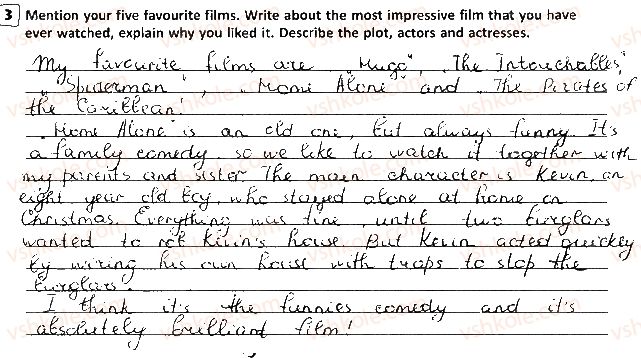 3 Mention your five favourite films. Write about the most impressive film that you have
ever watched, explain why you liked it. Describe the plot, actors and actresses.
My favourite films are „Hugo", „The Intouchables",
„Spiderman", „Home Alone" and „The Pirates of
the Caribbean".
„Home Alone" is an old one, but always funny. It's
a family comedy, so we like to watch it together with
my parents and sister. The main character is Kevin, an
eight year old boy, who stayed alone at home on
Christmas. Everything was fine, until two burglars
wanted to rob Kevin's house. But Kevin acted quickly
by wiring his own house with traps to stop the
burglars!
I think it's the funnies comedy and it's
absolutely brilliant film!
vshkole.com